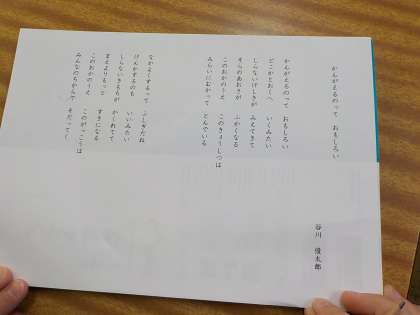 かんがえるのって　おもしろい
谷川　俊太郎
かんがえるのって　おもしろい
どこかとおくへ　いくみたい
しらないけしきが　みえてきて
そらのあおさが　ふかくなる
このおかのうえ　このきょうしつは
みらいにむかって　とんでいる
なかよくするって　ふしぎだね
けんかするのも　いいみたい
しらないきもちが　かくれてて
まえよりもっと　すきになる
このおかのうえ　このがっこうは
みんなのちからで　そだってく